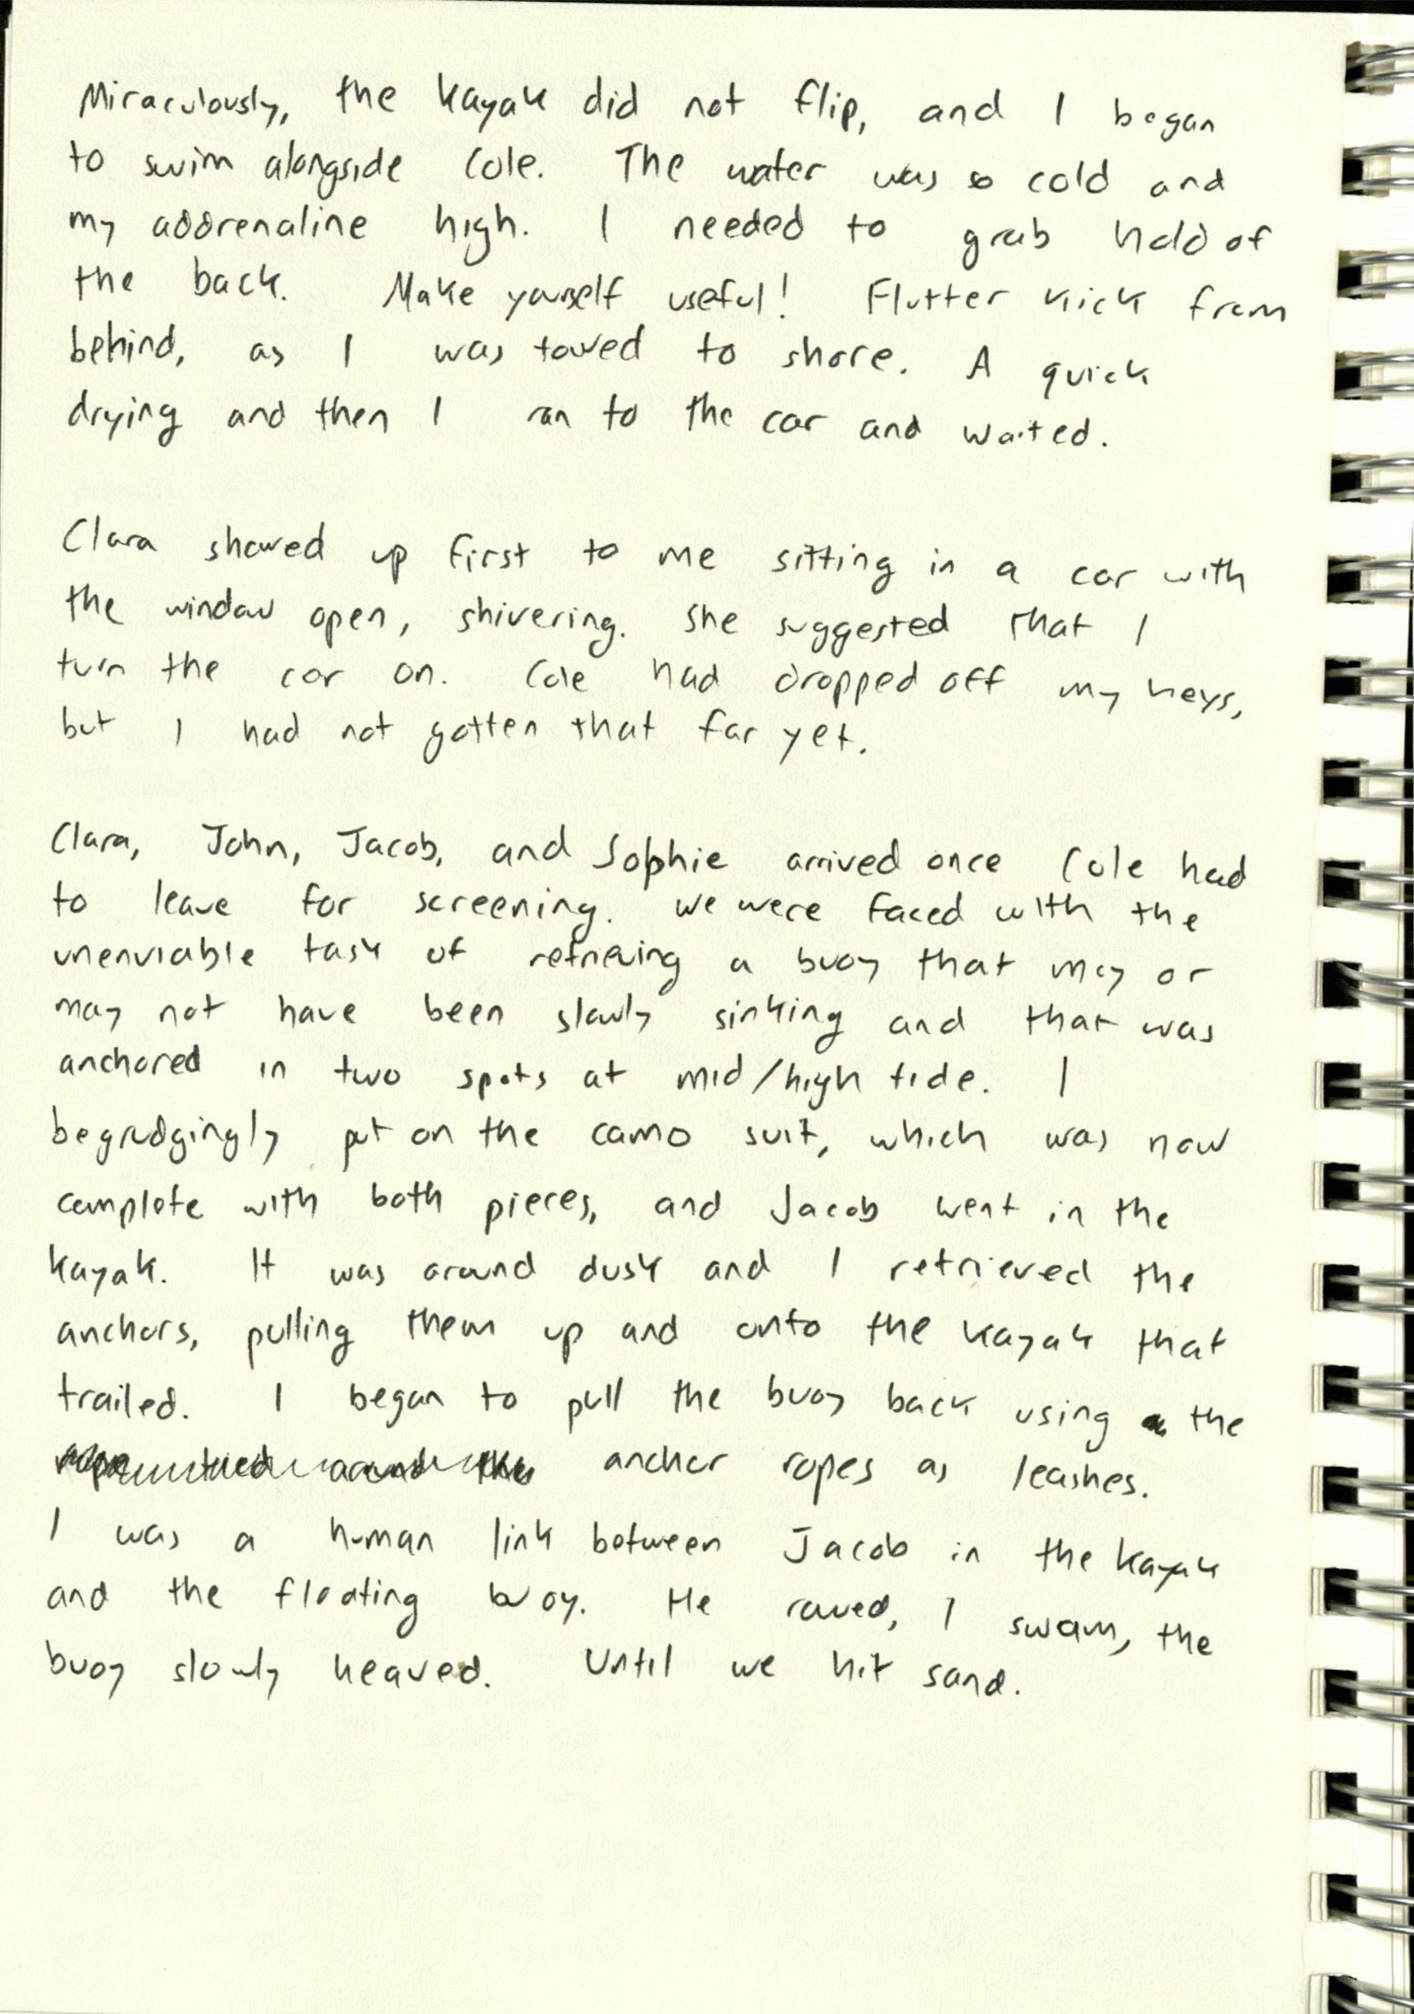 Miraculously, the kayak did not flip, and I began
to swim alongside Cole. The water was so cold and
my addrenaline high. I needed to grab hold of
the back. Make yourself useful! Flutter kick from
behind, as I was towed to shore. A quick
drying and then I ran to the car and waited.
Clara showed up first to me sitting in a car with
the window open, shivering. She suggested that I
turn the car on. Cole had dropped off my keys,
but I had not gotten that far yet.
Clara, John, Jacob, and Sophie arrived once Cole had
to leave for screening. We were faced with the
unenviable task of retrieving a buoy that may or
may not have been slowly sinking and that was
anchored in two spots at mid/high tide. I
begrudgingly put on the camo suit, which was now
complete with both pieces, and Jacob went in the
kayak. It was around dusk and I retrieved the
anchors, pulling them up and onto the kayak that
trailed. I began to pull the buoy back using the
anchor ropes as leashes.
I was a human link between Jacob in the kayak
and the floating buoy. He rowed, I swam, the
buoy slowly heaved. Until we hit sand.